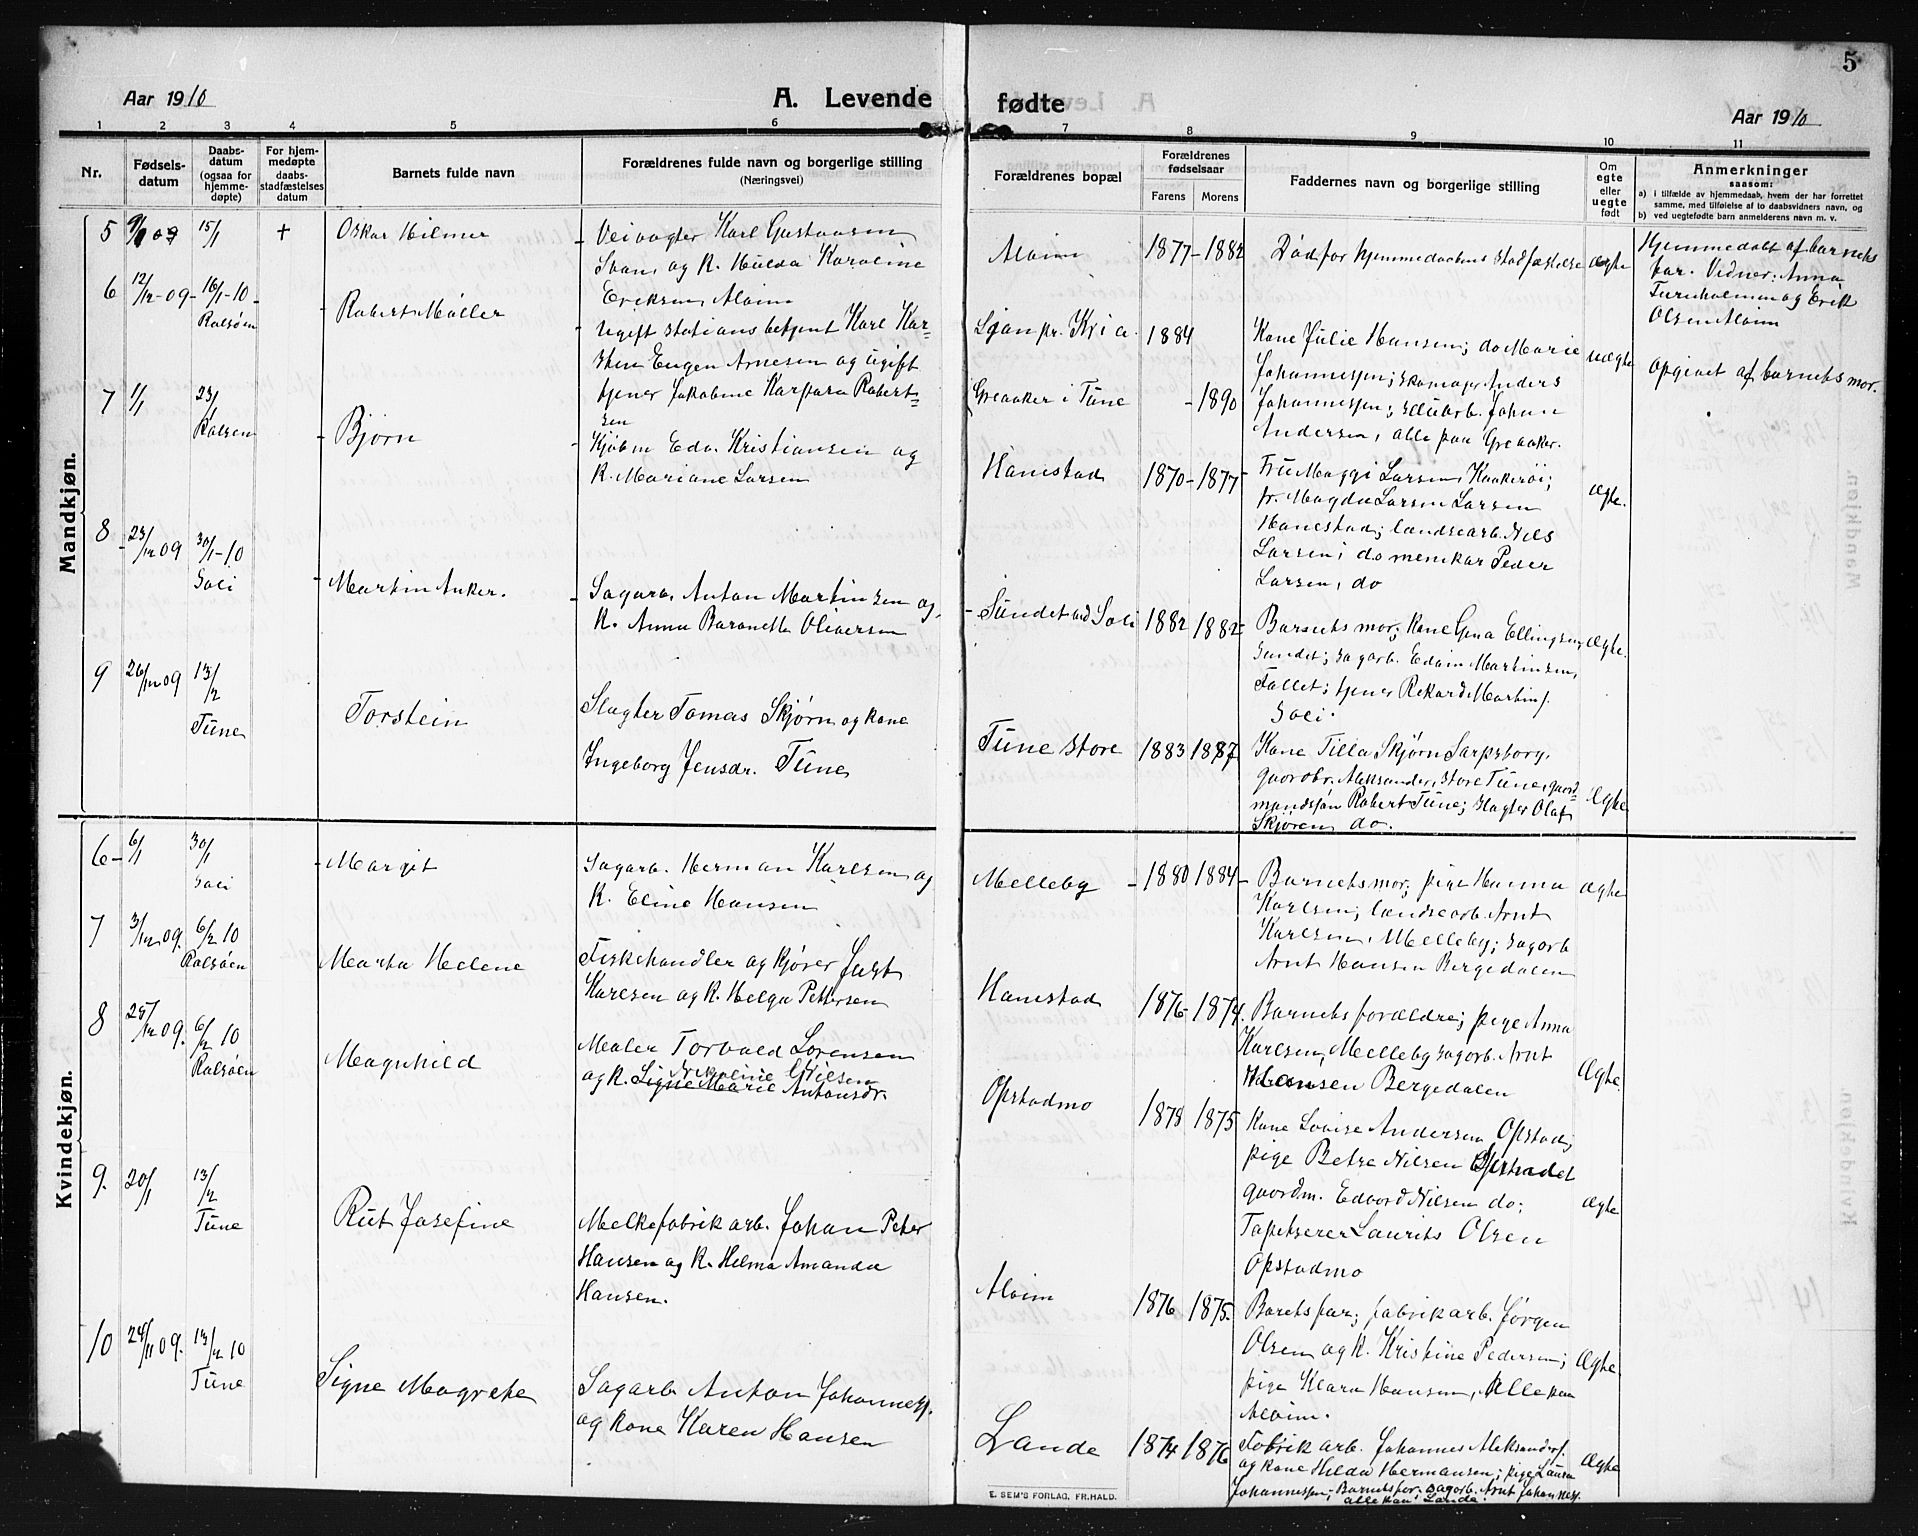 5
Aar 1910
A. Levende fødte
Aar 1910
1 2 3 4 5 6 7 8 9 10 11
Nr.
Fødsels-
datum
Daabs-
datum
(ogsaa for
hjemme-
døpte)
For hjem-
medøpte
daabs-
stadfæstelses
datum
Barnets fulde navn
Forældrenes fulde navn og borgerlige stilling
(Næringsvei)
Forældrenes bopæl
Forældrenes
fødselsaar
Farens Morens
Faddernes navn og borgerlige stilling
Om
egte
eller
uegte
født
Anmerkninger
saasom:
a) i tilfælde av hjemmedaab, hvem der har forrettet
samme, med tilføielse af to daabsvidners navn, og
b) ved uegtefødte barn anmelderens navn m. v.
Mandkjøn.
5
15/1
+
Oskar Hilmer
Veivogter Karl Gustavsen
og K. Hulda Karoline
Eriksen, Alvim
Alvim
1877 - 1882
Død før hjemmedaabens stadfæstelse
ægte
Hjemmedøbt af barnets
far. Vidner: Anna
og Erik
Olsen Alvim
6
12/12-09-
16/1-10-
Rolsøen
Robert Møller
Ugift stationsbetjent Karl Kar-
sten Eugen Arnesen og ugift
tjener Jakobine Kaspara Robert-
sen
Ljan pr. Kria.
1884
Greaaker i Tune
- 1890
Kone Julie Hansen; do Marie
Johannessen; skomager Anders
Johannessen; cellularb. Johan
Andersen, alle paa Greaaker.
uægte
opgivet af barnets mor.
7
1/1
23/1
Rolsøen
Bjørn
Kjøbm Edv. Kristiansen og
K. Mariane Larsen
Hanestad
1870 - 1877 -
Fru Maggi Larsen,
fr. Magda Larsen Larsen
Hanestad; landsearb. Nils
Larsen; do menskar Peder
Larsen, do
Ægte.
8
23/12 09
30/1-10
Soli
Martin Anker.
Sagarb. Anton Martinsen og
K. Anna Baranette Oliversen
Sundet ved Soli
1882 1882-
Barnets mor; Kone Gina Ellingsen,
Sundet; sagarb. Edvin Martinsen,
Fallet; tjener Rekard Martins.
Soli.
Ægte.
9
26/12 09
13/2
Tune
Torstein
Slagter Tomas Skjørn og kone
Ingeborg Jensdr. Tune
Tune store
1883 1887
Kone Tilla Skjørn Sarpsborg,
gaardbr. Aleksander, store Tune, gaard-
mandssøn Robert Tune; slagter Olaf
Skjøren do.
Ægte
Kvindekjøn.
6 -
6/1
30/1
Soli
Margit
Sagarb. Herman Karlsen og
K. Eline Hansen
Melleby
- 1880 1884 -
Barnets mor; pige Hanna
Karlsen; landsearb. Arnt
Karlsen, Melleby; sagarb
Arnt Hansen Bergedalen
ægte
7
3/12 09.
6/2 10
Rolsøen
Marta Helene
Fiskehandler og kjører Just
Karlsen og K. Helga Pettersen
Hanestad
1876- 1874.
Barnets forældre; pige Anna
Karlsen, Melleby sagarb. Arnt
Hansen Bergedalen
Ægte.
8
25/12 09.
6/2 10
Rolsøen
Magnhild
Maler Torvald Lorensen
Nikoline Nilsen
og K. Signe Marie Antonsdr.
Opstadmo
1878 1875
Kone Lovise Andersen Opstad;
pige Betze Nilsen Opstadet
gaardm. Edvard Nilsen do;
Tapetserer Laurits Olsen
Opstadmo
Ægte
9.
20/1
13/2
Tune
Rut Josefine
Melkefabrikarb. Johan Peter
Hansen og K. Hilma Amanda
Hansen.
Alvim
1876 1875.
Baretsfar; fabrikarb. Jørgen
Olsen og K. Kristine Pedersen;
pige Klara Hansen, Alle paa
Alvim.
Ægte
10
24/11 09.
13/2 10
Tune
Signe Magrete
Sagarb Anton Johanness.
og kone Karen Hansen
Lande
1874 1876
Fabrikarb. Johannes Aleksanders.
og kone Hilda Hermansen; pige Laura
Johannessen; Barnetsfar. sagarb. Arnt Johanness.
alle paa Lande.
Ægte
E. SEM'S FORLAG, FR.HALD.